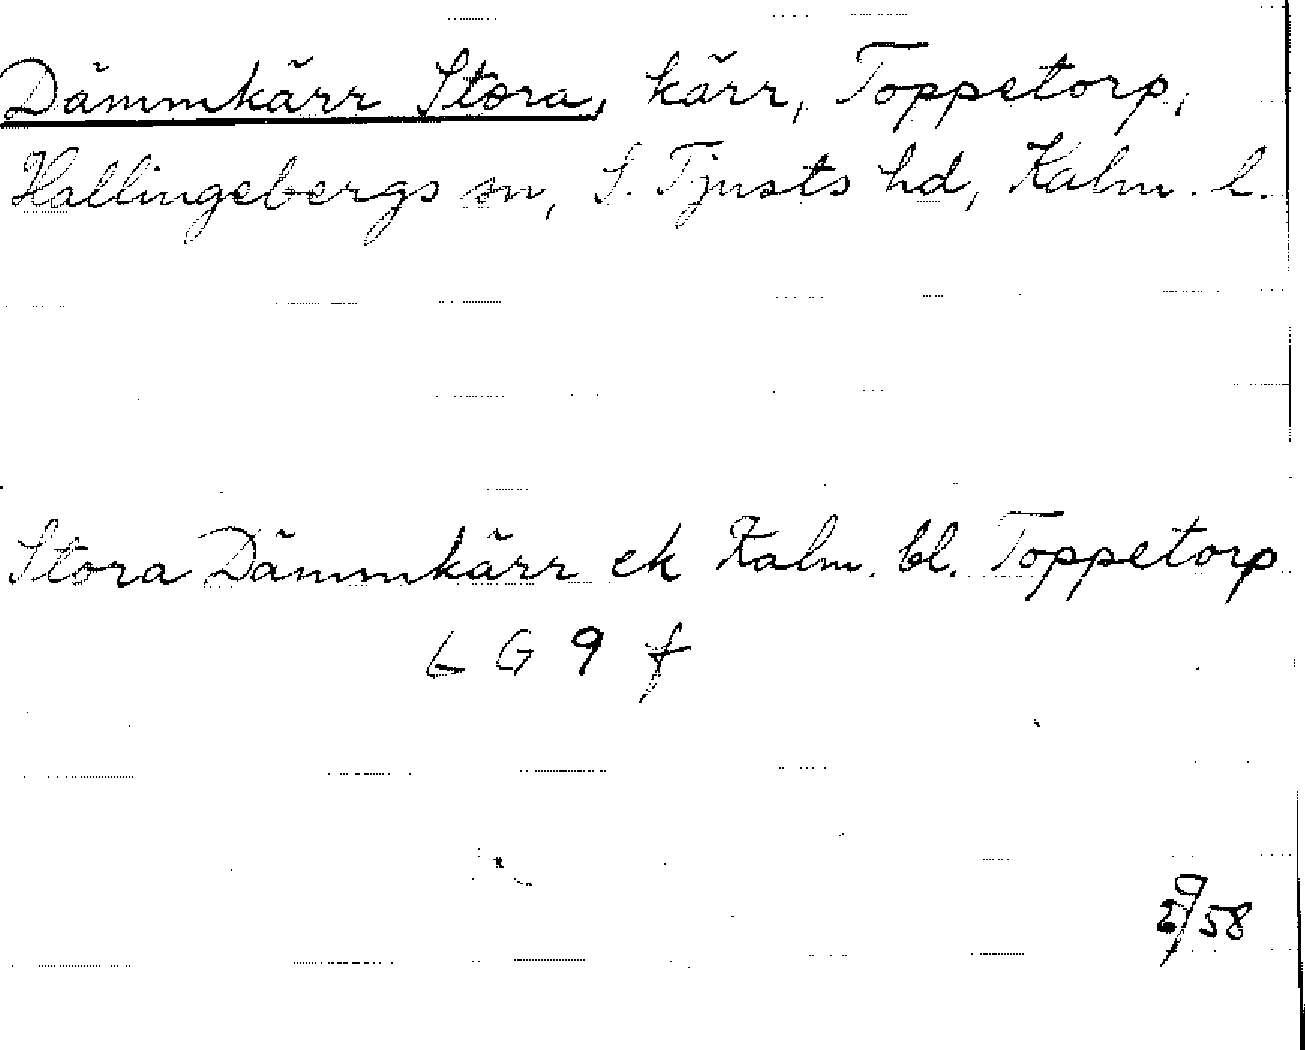 Dämmkärr Stora, kärr, Toppetorp,
Hallingebergs sn, S. Tjusts hd, Kalm. l.
Stora Dämmkärr ek Kalm. bl. Toppetorp
L G 9 f
58